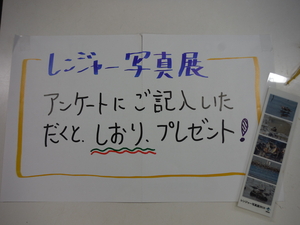 レンジャー写真展
アンケートにご記入いた
だくと、しおり、プレゼント！